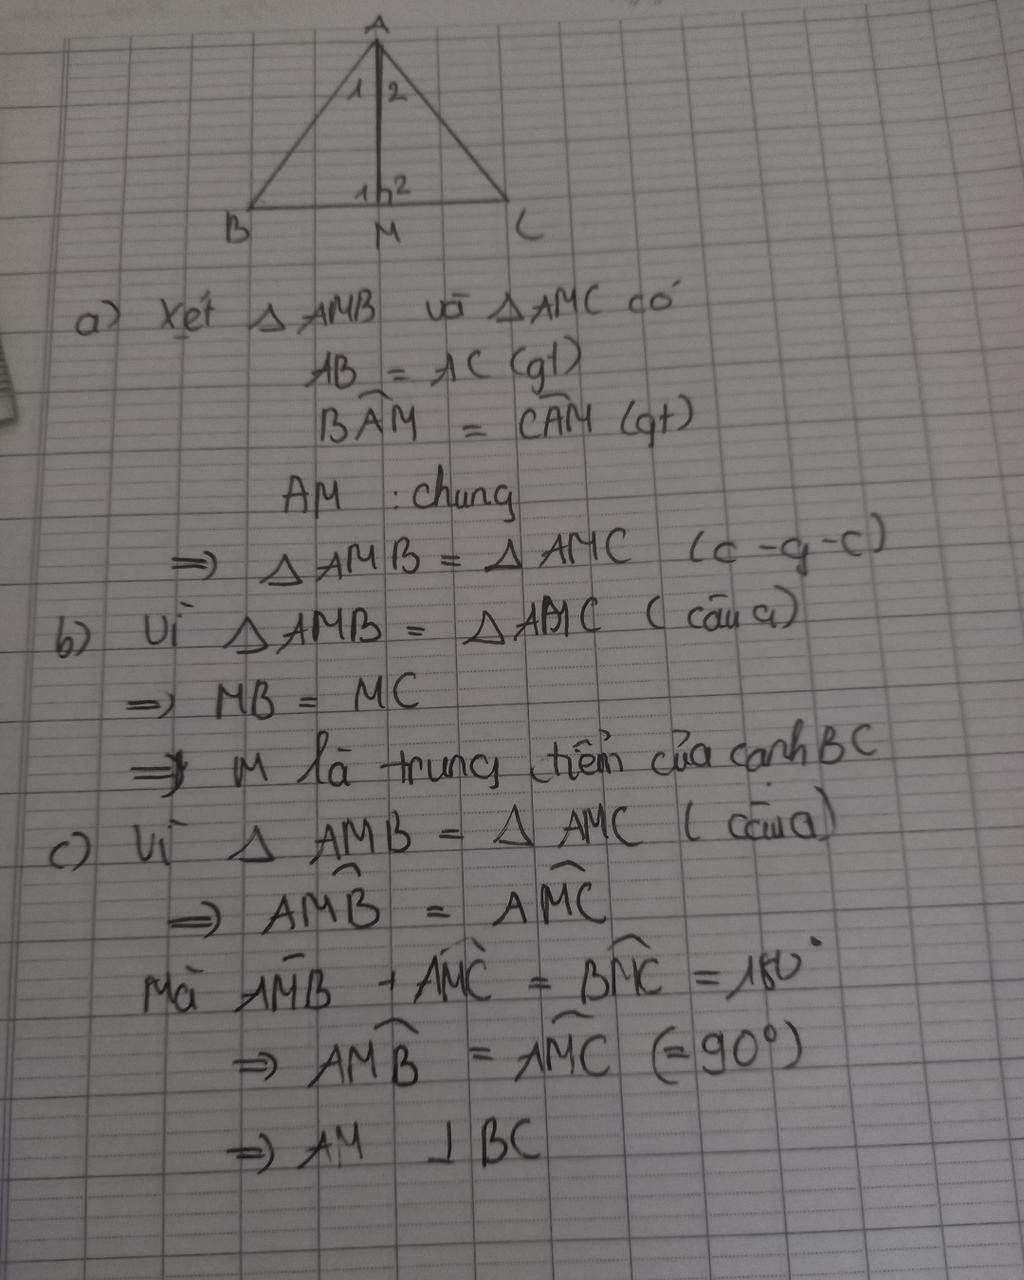 A
1 2
1 2
B M C
a) Xét Δ AMB và Δ AMC có
AB = AC (gt)
BÂM = CÂM (gt)
AM : chung
=> Δ AMB = Δ AMC (c-g-c)
b) Vì Δ AMB = Δ AMC (câu a)
=> MB = MC
=> M là trung điểm của cạnh BC
c) Vì Δ AMB = Δ AMC (câu a)
=> AM̂B = AM̂C
Mà AM̂B + AM̂C = BM̂C = 180°
=> AM̂B = AM̂C (= 90°)
=> AM ⊥ BC